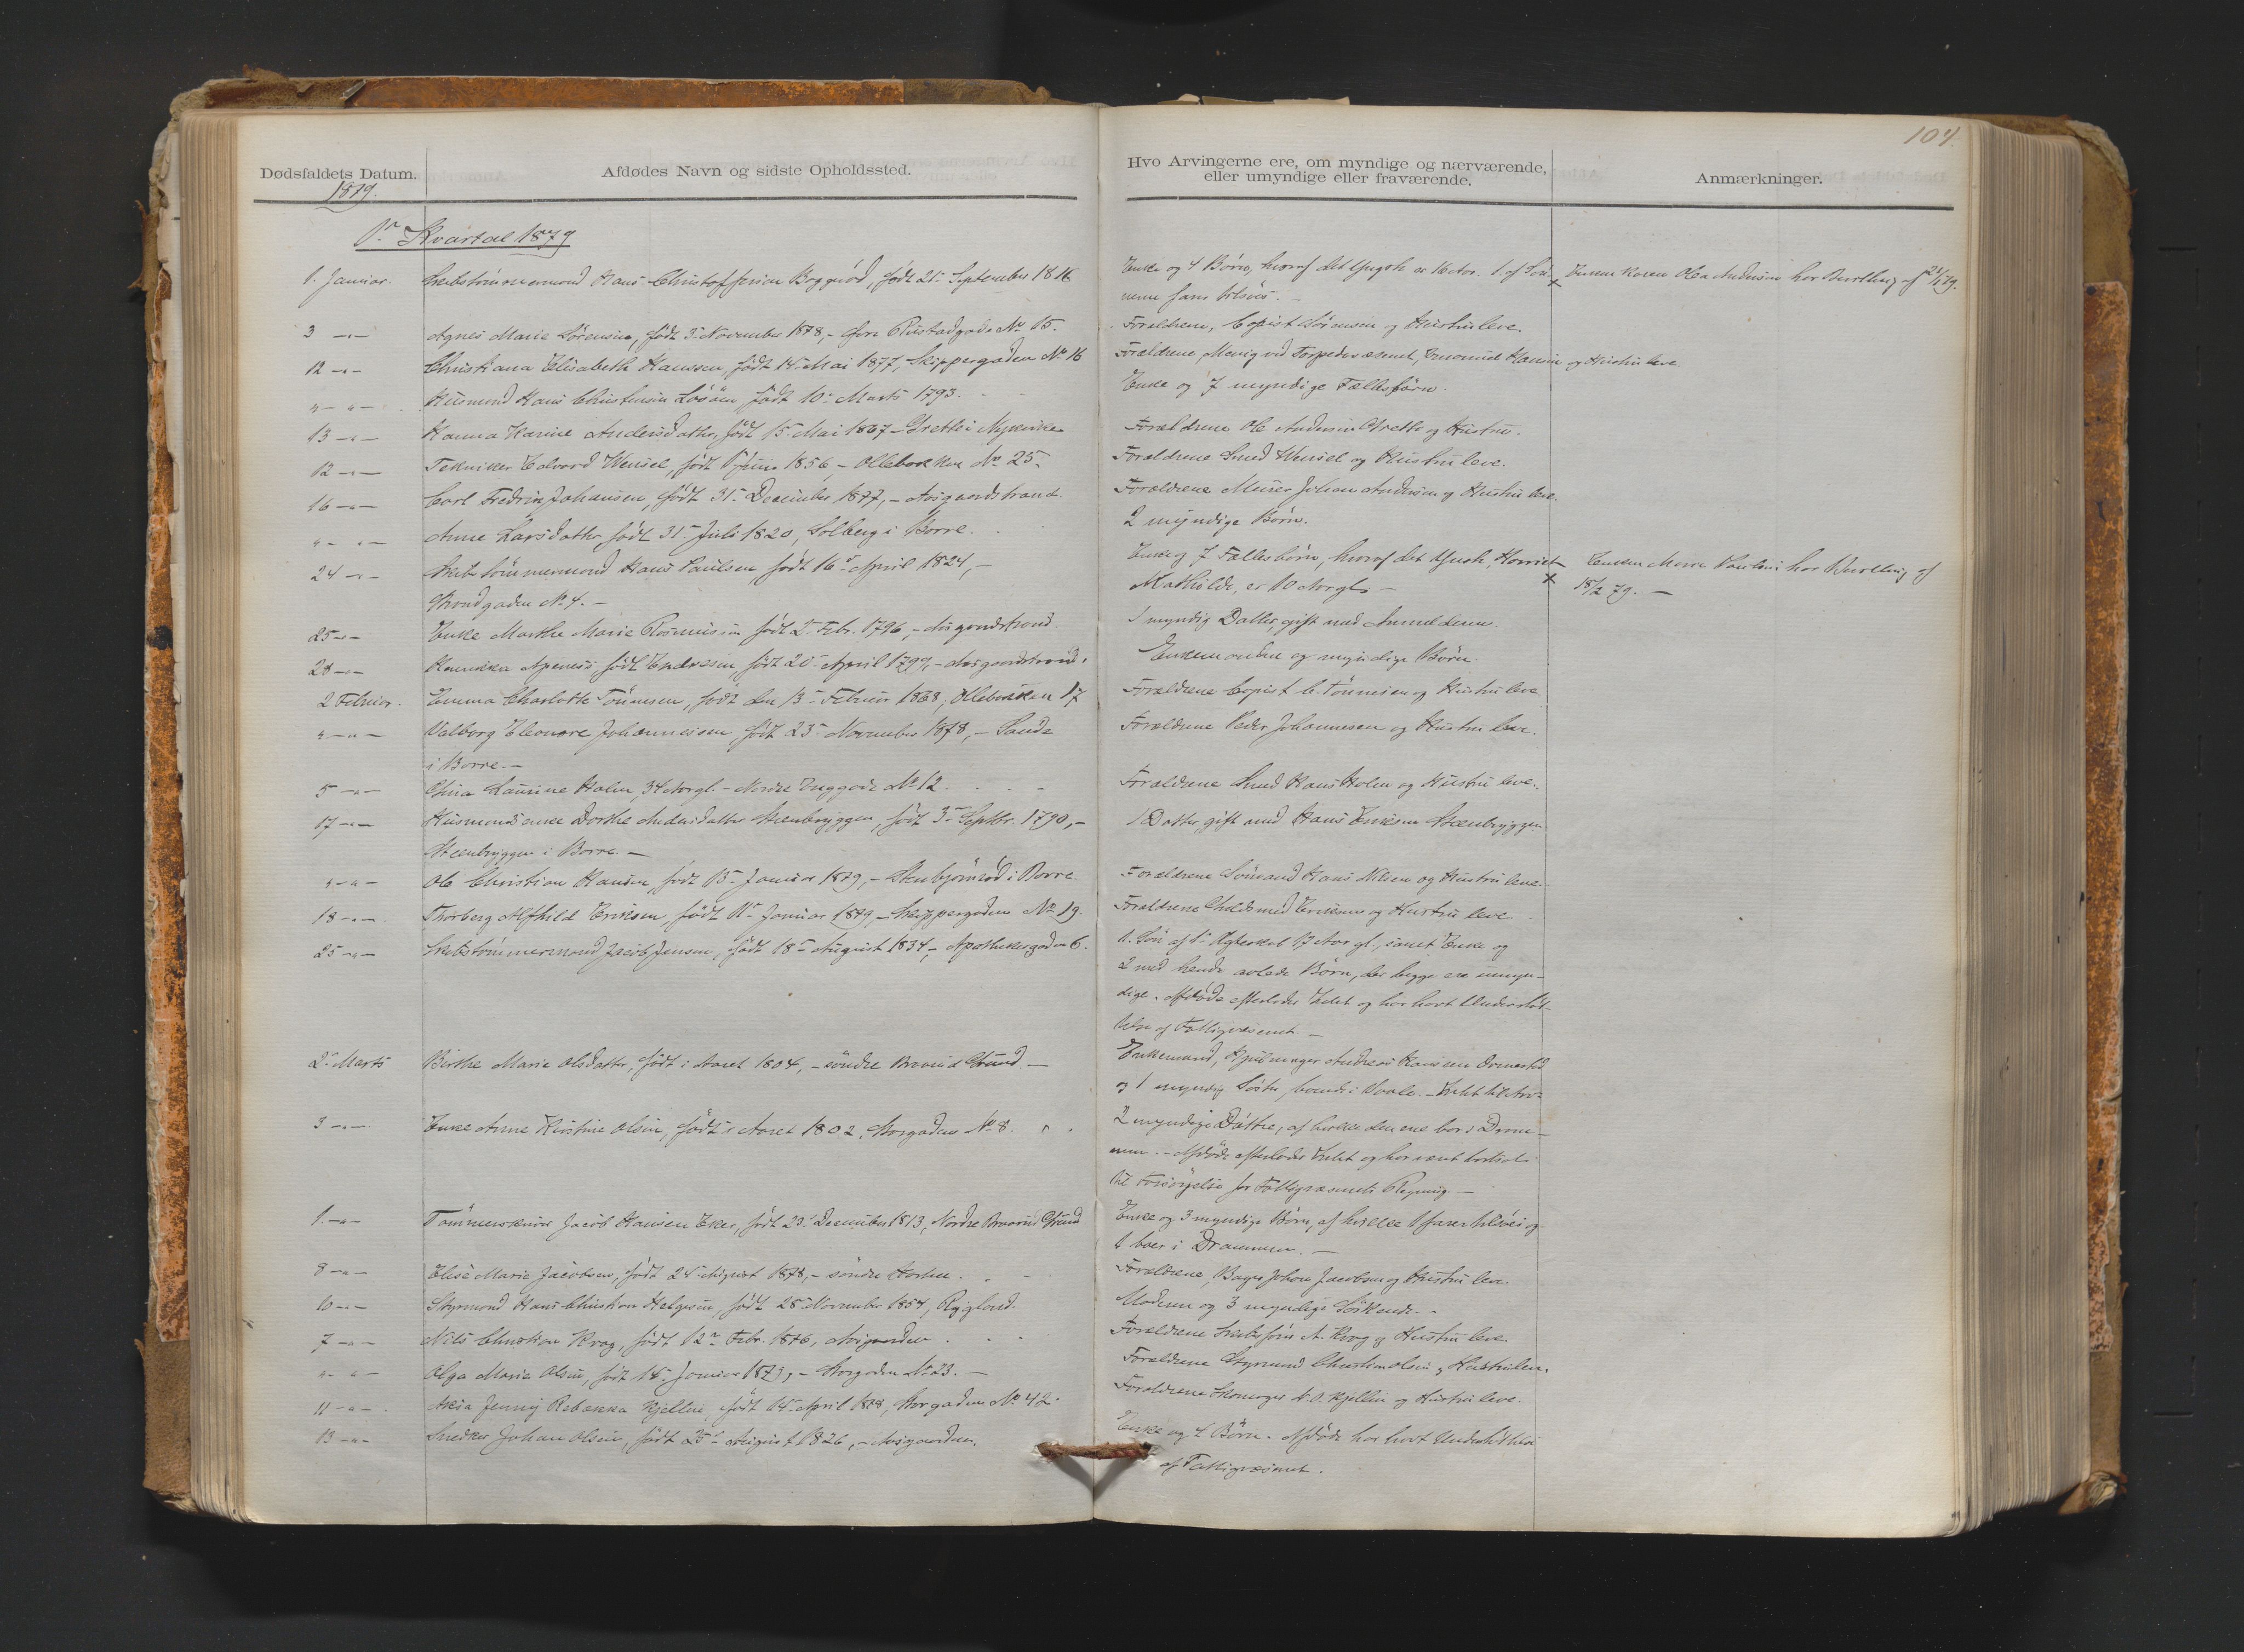 104.
Dødsfaldets Datum.
1879.
Afdødes Navn og sidste Opholdssted.
Hvo Arvingerne ere, om myndige og nærværende,
eller umyndige eller fraværende.
Anmærkninger.
1ste Kvartal 1879
1. Januar. Skibstømmermand Hans Christoffersen født 21. September 1816
Enke og 4 Børn, hvoraf det Yngste er 16 Aar. 1 af Søn-
nerne fare tilsøes.
Enken Karen Olea Andersen har Bevilling af
3 -"- Agnes Marie Sørensen, født 3. November 1878, Nº 15.
Forældrene, Copist Sørensen og Hustru leve.
12 -"- Christiana Elisabeth Hanssen, født 14. Mai 1877, Skippergaden Nº 16
Forældrene, Menig ved Torpedovæsenet, Hansen og Hustru leve.
"-"- Husmand Hans Christensen født 10. Marts 1793.
Enke og 7 myndige Fællesbørn.
13 -"- Hanna Karine Andersdatter, født 15. Mai 1867 - i Nykirke
Forældrene Ole Andersen og Hustru.
12 -"- Tekniker Edvard Wensel, født 1856 - Ollebakken Nº 25.
Forældrene Smed Wensel og Hustru leve.
16 -"- Carl Fredrik Johansen, født 31. December 1877, - Aasgaardstrand.
Forældrene Murer Johan Andersen og Hustru leve.
"-"- Anne Larsdatter, født 31. Juli 1820, Solberg i Borre.
2 myndige Børn.
24 -"- Skibstømmermand Hans Paulsen, født 16. April 1824,
Strandgaden Nº 4. -
Enke og 7 Fællesbørn, hvoraf det Yngste, Harriet
Mathilde, er 10 Aar gl. -
Enken Marie Paulsen har Bevilling af
18/2 79. -
25 -"- Enke Marthe Marie Rasmussen født 2. Febr. 1796, - Aasgaardstrand.
1 myndig Datter, gift med Anmelderen.
28 -"- født Endresen, født 20. April 1799, - Aasgaardstrand.
Enkemanden og myndige Børn.
2 Februar. Emma Charlotte Tønnesen, født den 13. Februar 1868, Ollebakken 17
Forældrene Copist C. Tønnesen og Hustru leve.
"-"- Valborg Eleonore Johannessen, født 23. November 1878, - Sande
i Borre. -
Forældrene Peder Johannesen og Hustru leve.
5 -"- Laurine Holm, 34 Aar gl. - Nordre Enggade Nº 12
Forældrene Smed Hans Holm og Hustru leve.
17 -"- Husmandsenke Dorthe Andersdatter Steenbryggen, født 3. Septbr. 1790, -
Steenbryggen i Borre. -
1 Datter, gift med Hans Eriksen Steenbryggen
"-"- Ole Christian Hansen, født 15. Januar 1879, - i Borre.
Forældrene Sømand Hans Nilsen og Hustru leve.
18 -"- Thorberg Alfhild Eriksen, født 11. Januar 1879, - Skippergaden Nº 19.
Forældrene Guldsmed Eriksen og Hustru leve.
25 -"- Skibstømmermand Jacob Jensen, født 18. August 1834, - Apothekergaden 6.
1 Søn af 1. Ægteskab 17 Aar gl., samt Enke og
2 med hende avlede Børn, der begge ere umyn-
dige. Afdøde efterlader Intet og har havt Understøt-
telse af Fattigvæsenet. -
2. Marts Birthe Marie Olsdatter, født i Aaret 1804, - søndre Braarud Grund -
Enkemand, Andreas Hanssen
og 1 myndig Søster, boende i Vaale. - Intet til Arv
3 -"- Enke Anne Kirstine Olsen, født i Aaret 1802, Storgaden Nº 8.
2 myndige Døttre, af hvilke den ene bor i Dram-
men. - Afdøde efterlader Intet og har været bortsat
til Forsørgelse for Fattigvæsenets Regning. -
1. -"- Jacob Hansen Eker, født 23. December 1813, Nordre Braarud Grund
Enke og 3 myndige Børn, af hvilke 1 farer tilsøes og
1 boer i Drammen. -
8 -"- Elise Marie Jacobsen, født 24. August 1878, - søndre
Forældrene, Bager Johan Jacobsen og Hustru leve.
10 -"- Styrmand Hans Christian Helgesen, født 28. November 1854,
Moderen og 3 myndige Søskende. -
7 -"- Nils Christian Krog, født 12. Febr. 1876,
Forældrene A. Krog og Hustru leve.
"-"- Olga Marie Olsen, født 14. Januar 1879, - Storgaden Nº 23. -
Forældrene Styrmand Christian Olsen og Hustru leve.
11 -"- Jenny Rebekka Kjellin, født 14. April 1878, Storgaden Nº 42.
Forældrene Skomager Kjellin og Hustru leve.
13 -"- Snedker Johan Olsen, født 25. August 1826,
Enke og 4 Børn. Afdøde har havt Understøttelse
af Fattigvæsenet.